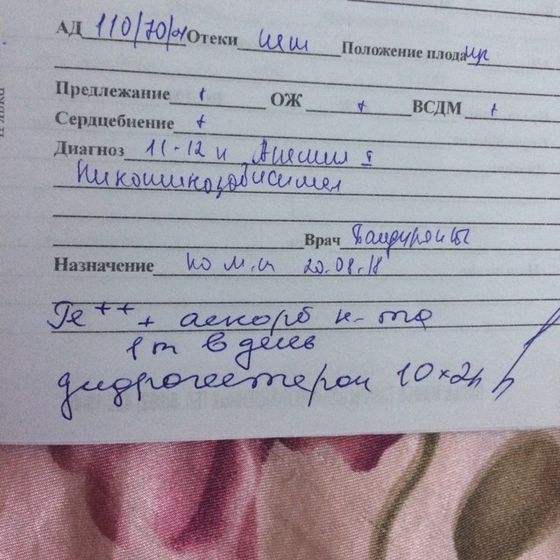 АД 110/70 Отеки нет Положение плода
Предлежание + ОЖ + ВСДМ +
Сердцебиение +
Диагноз 11-12 н Анемия I
Никотинозависимая
Врач
Назначение 20.08.18
Fe++ + аскорб к-та
1т в день
дидрогестерон 10×2р